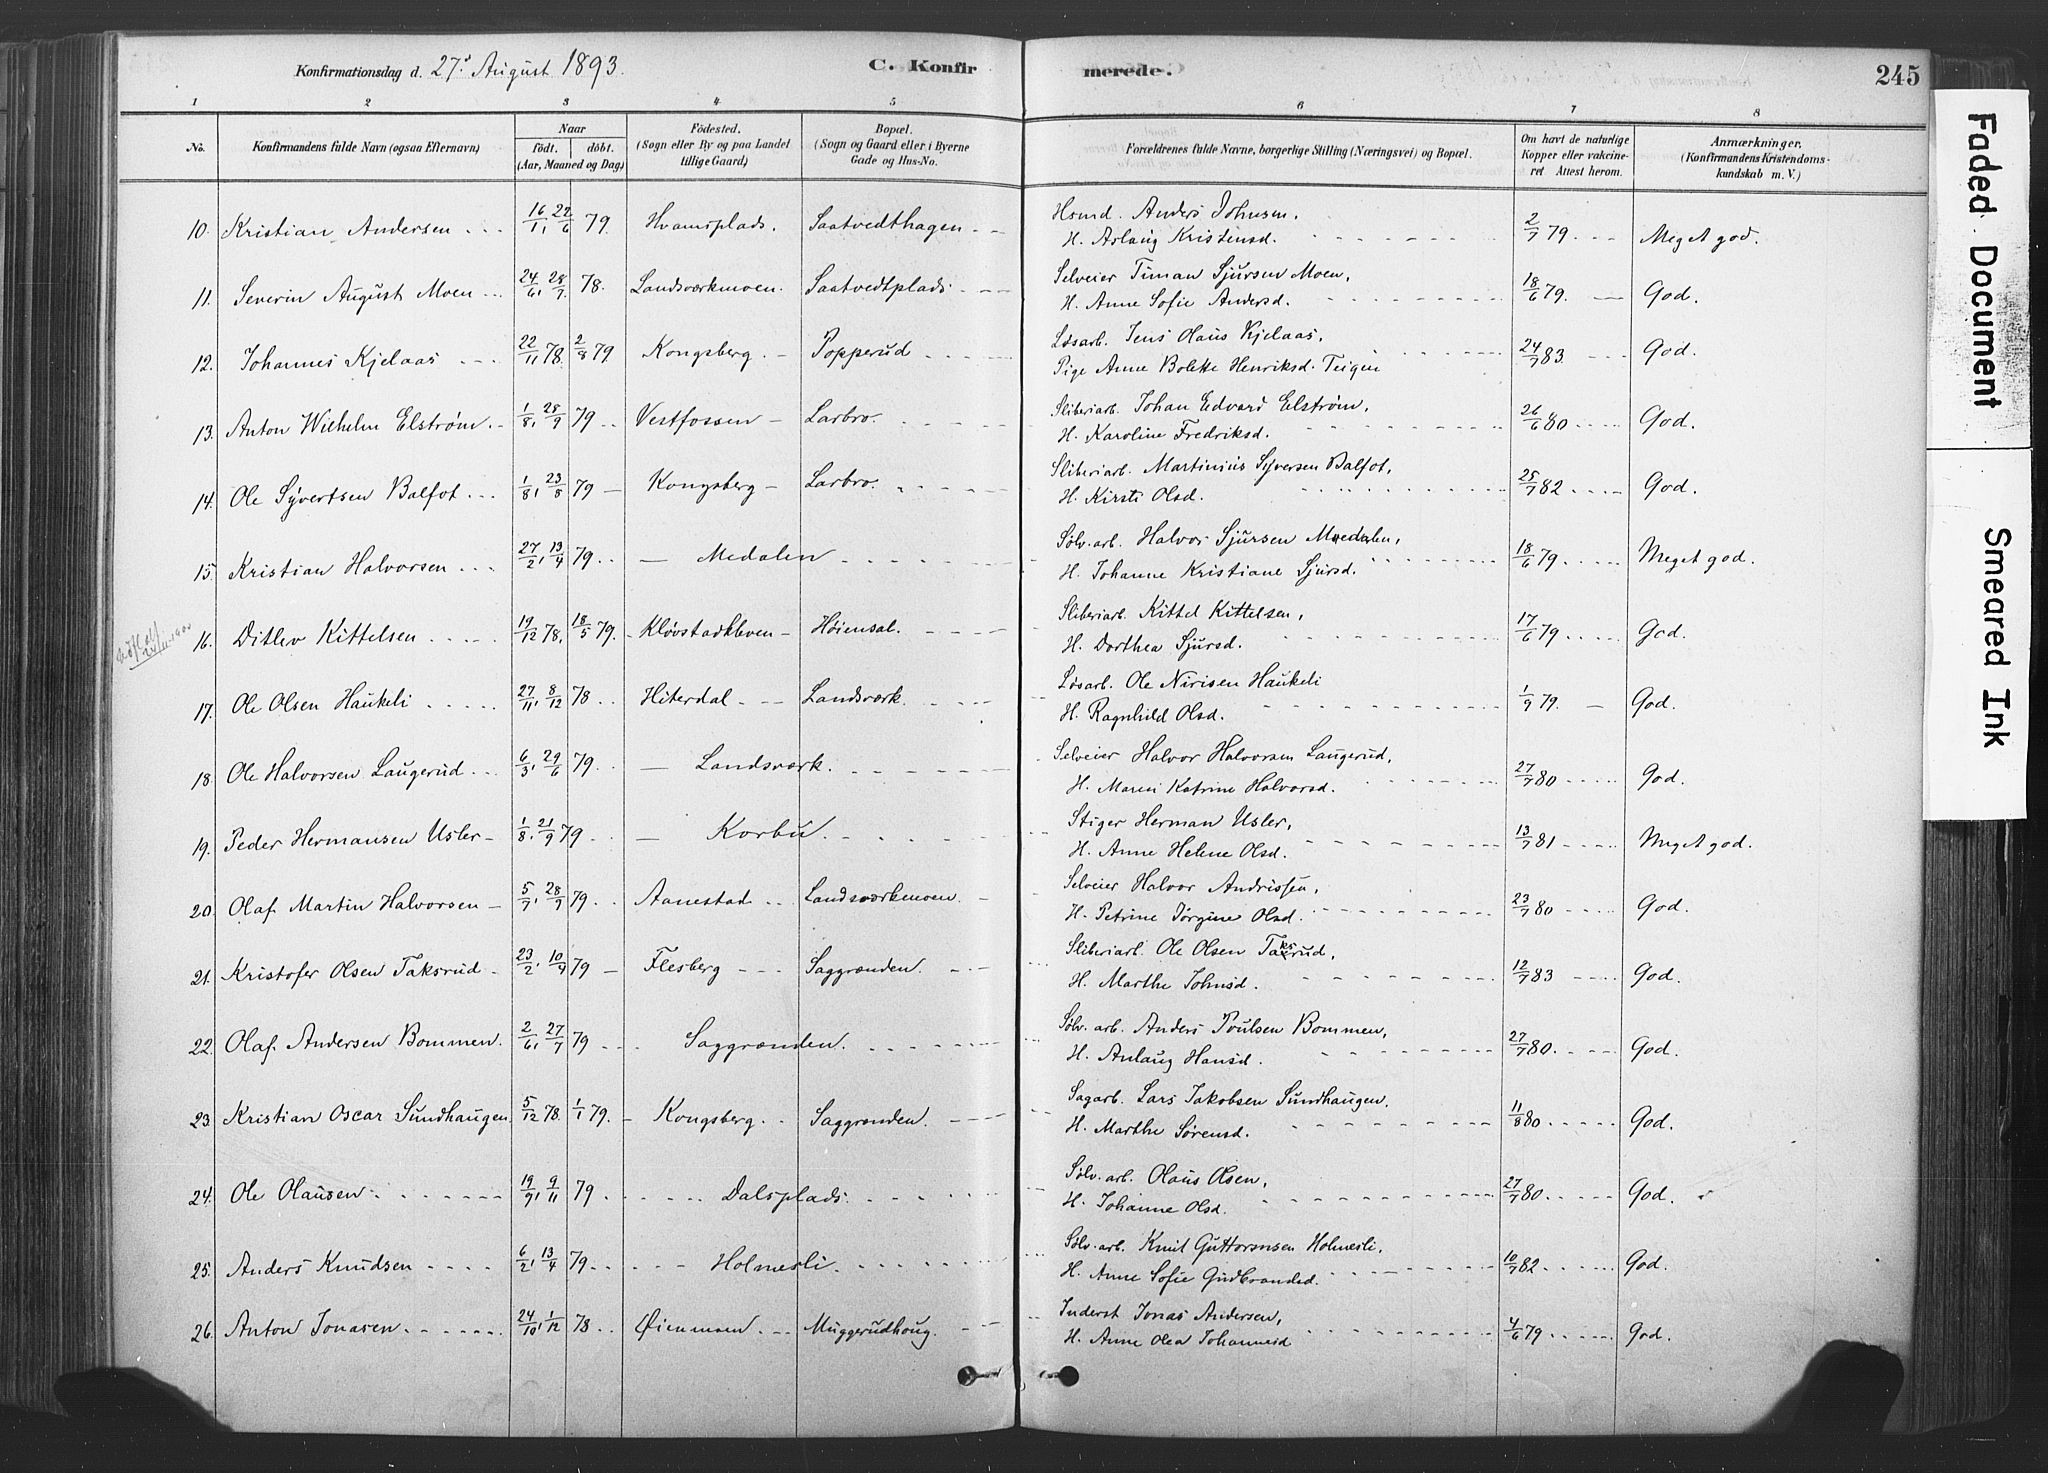 Konfirmationsdag d. 27de August 1893. C. Konfir merede. 245
1 2 3 4 5 6 7 8
No. Konfirmandens fulde Navn (ogsaa Efternavn) Naar født. døbt. (Aar, Maaned og Dag) Fødested. (Sogn eller By og paa Landet tillige Gaard) Bopæl. (Sogn og Gaard eller i Byerne Gade og Hus-No. Forældrenes fulde Navne, borgerlige Stilling (Næringsvei) og Bopæl. Om havt de naturlige Kopper eller vakcineret Attest herom. Anmærkninger, (Konfirmandens Kristendomskundskab m. V.)
10. Kristian Andersen 16/1, 22/6 79. Hvamsplads. Saatvedthagen Hsmd. Anders Johnsen, H. Aslaug Kristensd. 2/7 79. Meget god.
11. Severin August Moen 24/6, 28/7 78. Landsværkmoen. Saatvedtplads Selveier Timan Sjursen Moen, H. Anne Sofie Andersd. 18/6 79. God.
12. Johannes Kjelaas 22/11 78. 2/8 79 Kongsberg. Popperud Løsarb. Jens Olaus Kjelaas, Pige Anne Bolette Henriksd. Teigen 24/7 83. God.
13. Anton Wilhelm Elstrøm. 1/8, 28/9 79 Vestfossen Larbro. Sliberiarb. Johan Edvard Elstrøm, H. Karoline Fredriksd. 26/6 80 God.
14. Ole Syvertsen Balfot 1/8, 23/8 79 Kongsberg Larbro. Sliberiarb. Martinius Syversen Balfot, H. Kirsti Olsd. 25/7 82 God.
15. Kristian Halvorsen 27/2, 13/4 79. Medalen Sølv.arb. Halvor Sjursen Medalen, H. Johanne Kristiane Sjursd. 18/6 79 Meget god.
16. Ditlev Kittelsen 19/12 78, 18/5 79. Kløvstadkleven Høiensal. Sliberiarb. Kittel Kittelsen, H. Dorthea Sjursd. 17/6 79 God.
17. Ole Olsen Haukeli 27/11, 8/12 78 Hiterdal Landsværk. Løsarb. Ole Nirisen Haukeli H. Ragnhild Olsd. 1/9 79. God.
18. Ole Halvorsen Laugerud 6/3, 29/6 79. Landsværk. Selveier Halvor Halvorsen Laugerud, H. Maren Katrine Halvorsd. 27/7 80 God.
19. Peder Hermansen Usler 1/8, 21/9 79 Korbu. Stiger Herman Usler, H. Anne Helene Olsd. 13/7 81 Meget god.
20. Olaf Martin Halvorsen 5/7, 28/9 79 Aanestad Landsværkmoen. Selveier Halvor Andrissen, H. Petrine Jørgine Olsd. 23/7 80 God.
21. Kristofer Olsen Taksrud 23/2, 10/4 79 Flesberg Saggrænden. Sliberiarb. Ole Olsen Taksrud, H. Marthe Johnsd. 12/7 83 God.
22. Olaf Andersen Bommen. 2/6, 27/7 79 Saggrænden. Sølv.arb. Anders Poulsen Bommen, H. Anlaug Hansd. 27/7 80. God.
23. Kristian Oscar Sundhaugen. 5/12 78. 1/1 79. Kongsberg. Saggrænden. Sagarb. Lars Jakobsen Sundhaugen. H. Marthe Sørensd. 11/8 80 God.
24. Ole Olausen. 19/9, 9/11 79 Dalsplads. Sølv.arb. Olaus Olsen, H. Johanne Olsd. 27/7 80. God.
25. Anders Knudsen 6/2, 13/4 79. Holmesli. Sølv.arb. Knut Guttormsen Holmesli, H. Anne Sofie Gudbrandsd. 10/7 82 God.
26. Anton Jonasen. 24/10, 1/12 78 Øienmoen Muggerudhoug. Inderst Jonas Andersen, H. Anne Olea Johannesd 4/6 79 God.
Faded Document
Smeared Ink